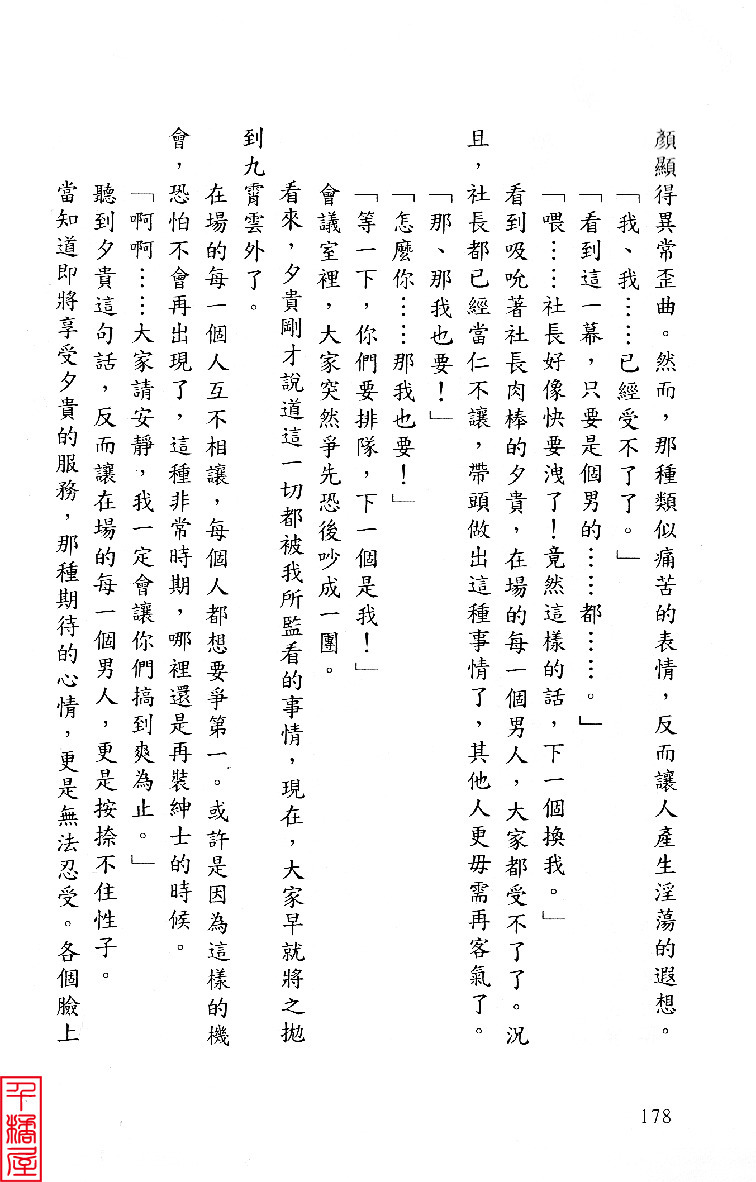 顏顯得異常歪曲。然而，那種類似痛苦的表情，反而讓人產生淫蕩的遐想。
「我、我……已經受不了了。」
「看到這一幕，只要是個男的……都……。」
「喂……社長好像快要洩了！竟然這樣的話，下一個換我。」
看到吸吮著社長肉棒的夕貴，在場的每一個男人，大家都受不了了。況
且，社長都已經當仁不讓，帶頭做出這種事情了，其他人更毋需再客氣了。
「那、那我也要！」
「怎麼你……那我也要！」
「等一下，你們要排隊，下一個是我！」
會議室裡，大家突然爭先恐後吵成一團。
看來，夕貴剛才說道這一切都被我所監看的事情，現在，大家早就將之拋
到九霄雲外了。
在場的每一個人互不相讓，每個人都想要爭第一。或許是因為這樣的機
會，恐怕不會再出現了，這種非常時期，哪裡還是再裝紳士的時候。
「啊啊……大家請安靜，我一定會讓你們搞到爽為止。」
聽到夕貴這句話，反而讓在場的每一個男人，更是按捺不住性子。
當知道即將享受夕貴的服務，那種期待的心情，更是無法忍受。各個臉上
178